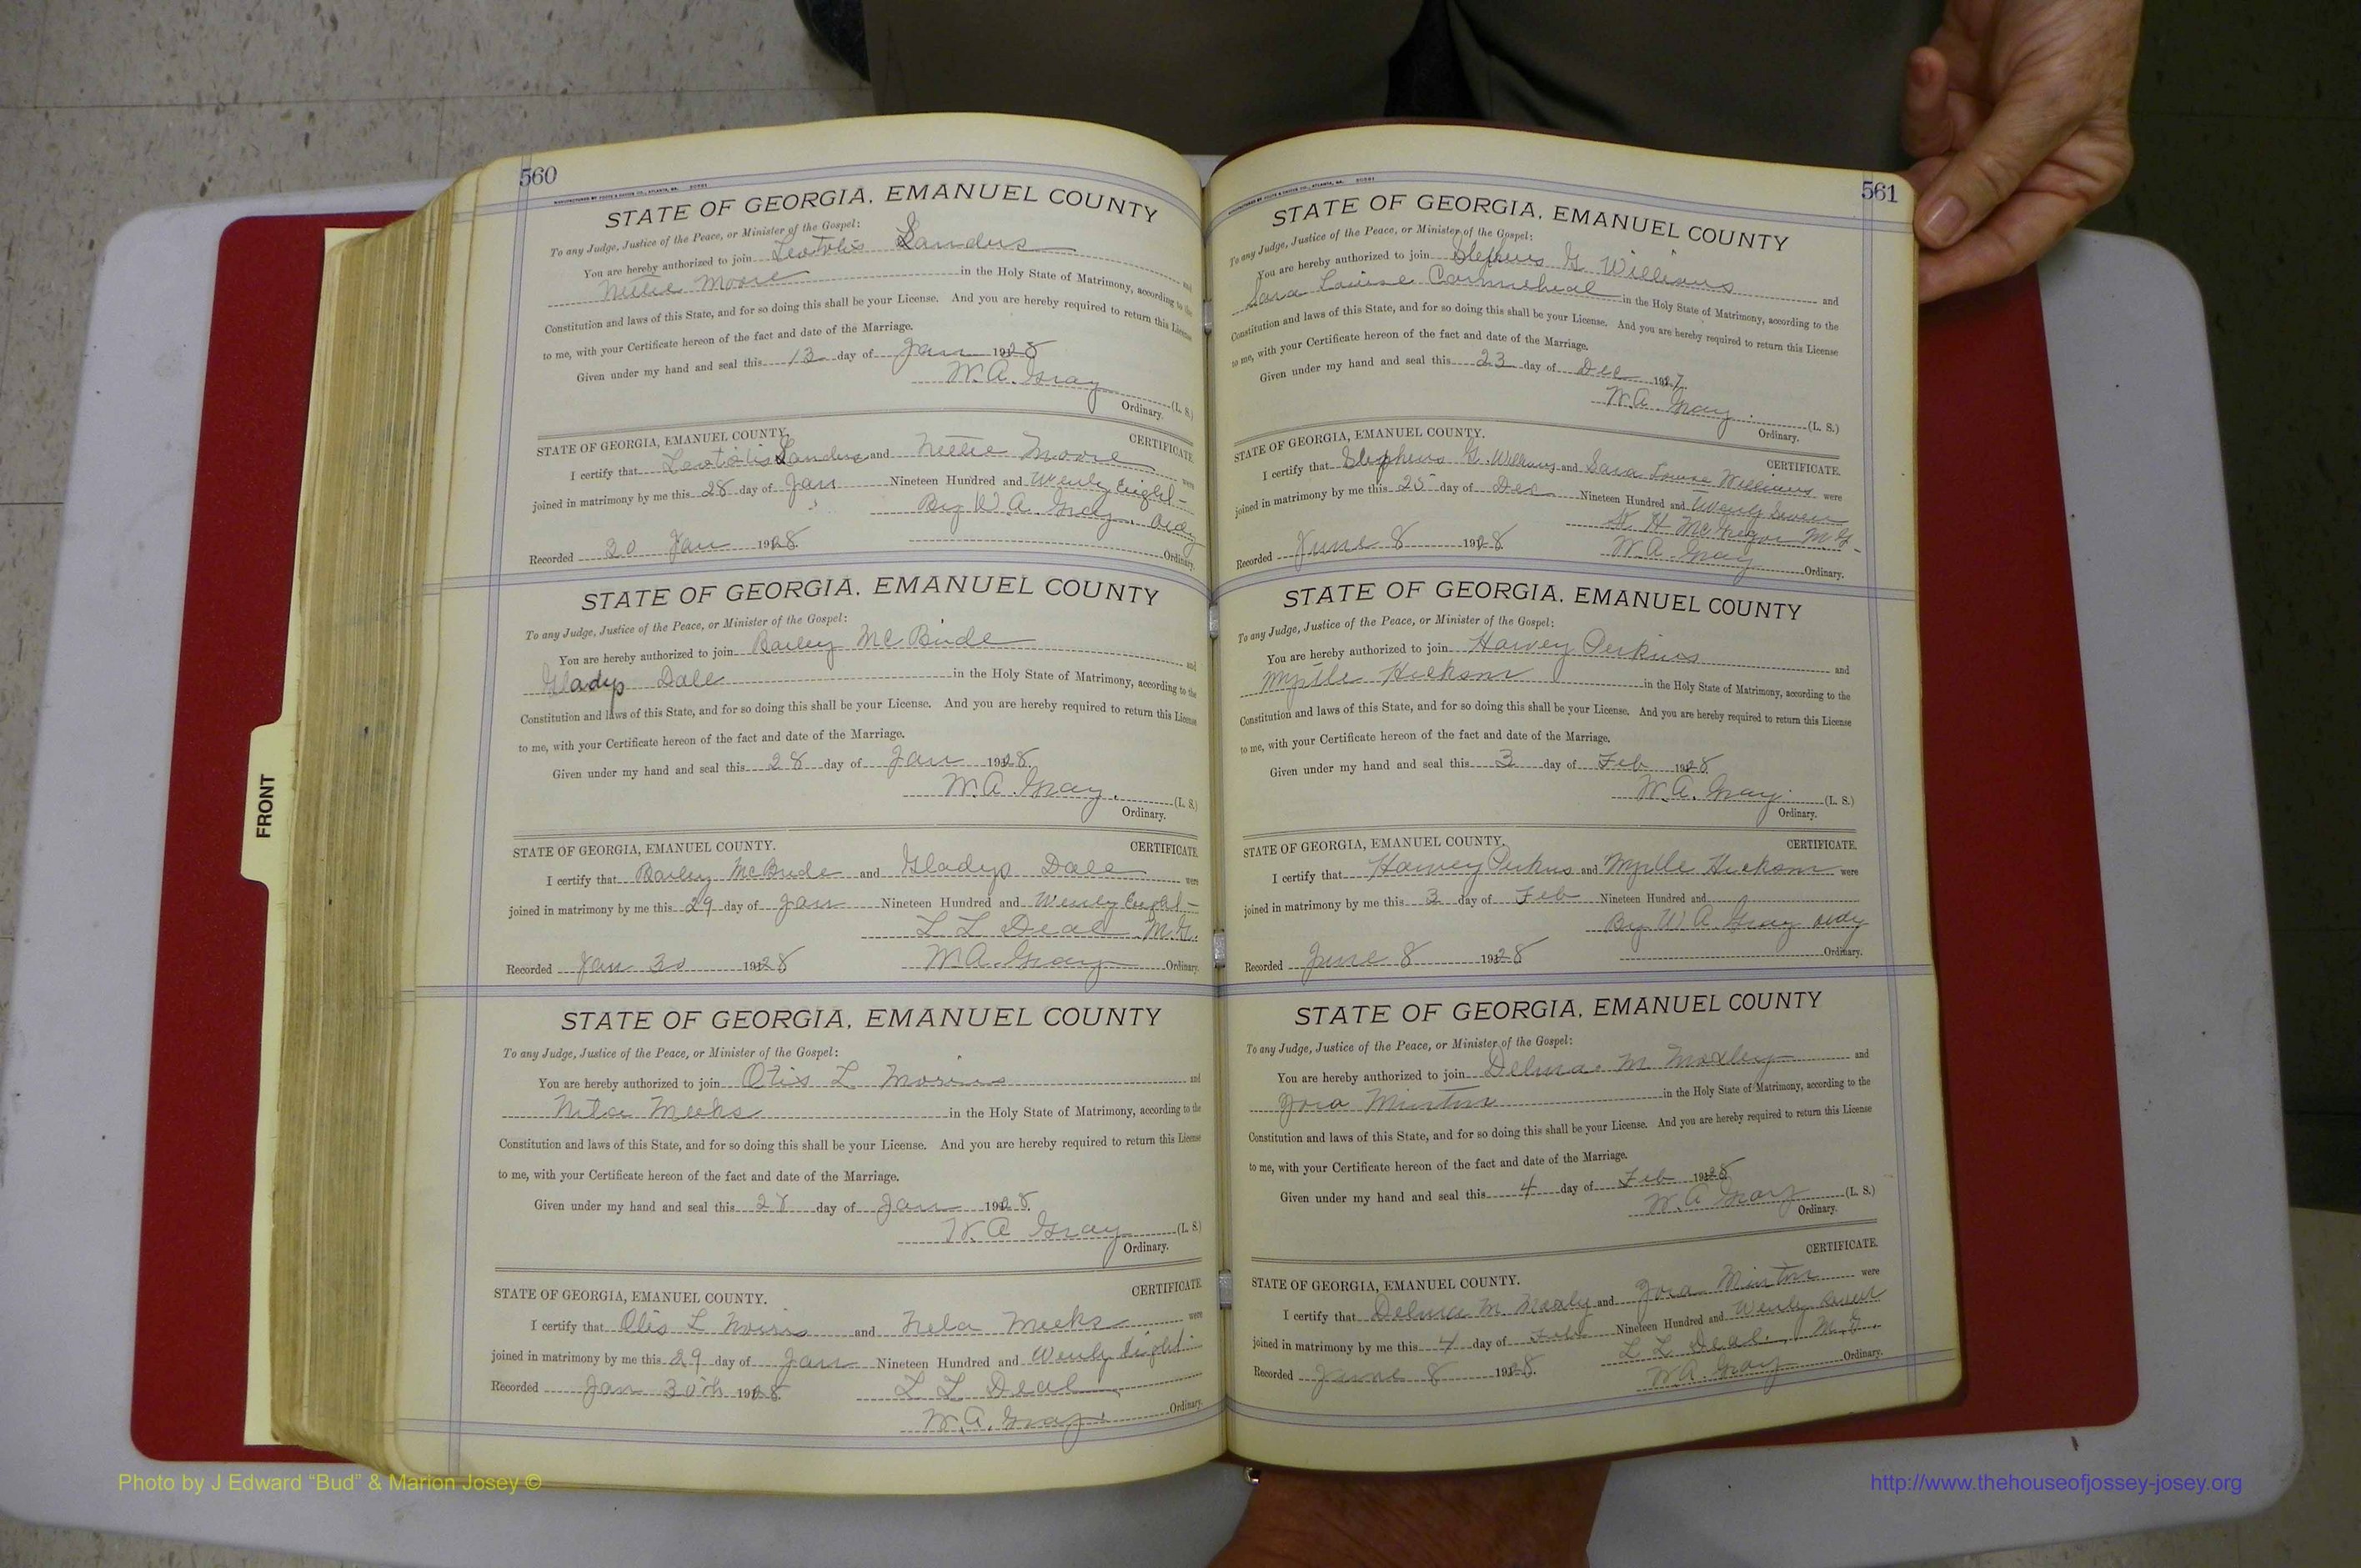 560
STATE OF GEORGIA, EMANUEL COUNTY
To any Judge, Justice of the Peace, or Minister of the Gospel:
You are hereby authorized to join Sanders and
Nellie Moore in the Holy State of Matrimony, according to the
Constitution and laws of this State, and for so doing this shall be your License. And you are hereby required to return this License
to me, with your Certificate hereon of the fact and date of the Marriage.
Given under my hand and seal this 13 day of Jan 1928
W. A. Gray (L. S.)
Ordinary.
STATE OF GEORGIA, EMANUEL COUNTY. CERTIFICATE
I certify that Sanders and Nellie Moore were
joined in matrimony by me this 28 day of Jan Nineteen Hundred and Twenty Eight
By W. A. Gray, Ordy
Recorded 30 Jan 1928 Ordinary.
STATE OF GEORGIA, EMANUEL COUNTY
To any Judge, Justice of the Peace, or Minister of the Gospel:
You are hereby authorized to join Bailey McBride and
Gladys Dale in the Holy State of Matrimony, according to the
Constitution and laws of this State, and for so doing this shall be your License. And you are hereby required to return this License
to me, with your Certificate hereon of the fact and date of the Marriage.
Given under my hand and seal this 28 day of Jan 1928.
W. A. Gray. (L. S.)
Ordinary.
STATE OF GEORGIA, EMANUEL COUNTY. CERTIFICATE
I certify that Bailey McBride and Gladys Dale were
joined in matrimony by me this 29 day of Jan Nineteen Hundred and Twenty Eight
L L Deal M.G.
Recorded Jan 30 1928 W. A. Gray Ordinary
STATE OF GEORGIA, EMANUEL COUNTY
To any Judge, Justice of the Peace, or Minister of the Gospel:
You are hereby authorized to join Otis L. and
Meeks in the Holy State of Matrimony, according to the
Constitution and laws of this State, and for so doing this shall be your License. And you are hereby required to return this License
to me, with your Certificate hereon of the fact and date of the Marriage.
Given under my hand and seal this day of Jan 1928.
W. A Gray (L. S.)
Ordinary.
STATE OF GEORGIA, EMANUEL COUNTY. CERTIFICATE
I certify that Otis L and Meeks were
joined in matrimony by me this 29 day of Jan Nineteen Hundred and Twenty Eight
Recorded Jan 30th 1928 L L Deal
W. A. Gray. Ordinary.
561
STATE OF GEORGIA, EMANUEL COUNTY
To any Judge, Justice of the Peace, or Minister of the Gospel:
You are hereby authorized to join Stephens G. Williams and
Sara Louise in the Holy State of Matrimony, according to the
Constitution and laws of this State, and for so doing this shall be your License. And you are hereby required to return this License
to me, with your Certificate hereon of the fact and date of the Marriage.
Given under my hand and seal this 23 day of Dec 1927
W. A. Gray. (L. S.)
Ordinary.
STATE OF GEORGIA, EMANUEL COUNTY. CERTIFICATE.
I certify that Stephens G. Williams and Sara Louise Williams were
joined in matrimony by me this 25 day of Dec Nineteen Hundred and Twenty Seven
H McGregor M G
Recorded June 8 1928 W. A. Gray Ordinary.
STATE OF GEORGIA, EMANUEL COUNTY
To any Judge, Justice of the Peace, or Minister of the Gospel:
You are hereby authorized to join Harvey Perkins and
Myrtle in the Holy State of Matrimony, according to the
Constitution and laws of this State, and for so doing this shall be your License. And you are hereby required to return this License
to me, with your Certificate hereon of the fact and date of the Marriage.
Given under my hand and seal this 3 day of Feb 1928
W. A. Gray. (L. S.)
Ordinary.
STATE OF GEORGIA, EMANUEL COUNTY. CERTIFICATE.
I certify that Harvey Perkins and Myrtle were
joined in matrimony by me this 3 day of Feb Nineteen Hundred and
By W A. Gray Ordy
Recorded June 8 1928 Ordinary.
STATE OF GEORGIA, EMANUEL COUNTY
To any Judge, Justice of the Peace, or Minister of the Gospel:
You are hereby authorized to join Delmas M Moxley and
Minton in the Holy State of Matrimony, according to the
Constitution and laws of this State, and for so doing this shall be your License. And you are hereby required to return this License
to me, with your Certificate hereon of the fact and date of the Marriage.
Given under my hand and seal this 4 day of Feb 1928
W. A Gray (L. S.)
Ordinary.
CERTIFICATE.
STATE OF GEORGIA, EMANUEL COUNTY.
I certify that M and Minton were
joined in matrimony by me this 4 day of Feb Nineteen Hundred and Twenty Seven
L L Deal, M.G.
Recorded June 8 1928. W. A. Gray Ordinary.
FRONT
Photo by J Edward “Bud” & Marion Josey ©
http://www.thehouseofjossey-josey.org